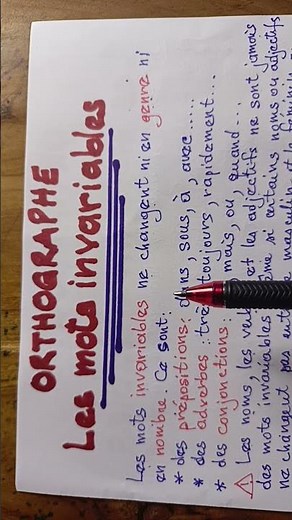 ORTHOGRAPHE
Les mots invariables
Les mots invariables ne changent ni en genre ni
en nombre. Ce sont:
* des prépositions: sous, à, avec.....
* des adverbes: toujours, rapidement...
* des conjonctions: mais, ou, quand...
Les noms, les et les adjectifs ne sont jamais
des mots invariables si certains noms ou adjectifs
ne changent pas masculin et